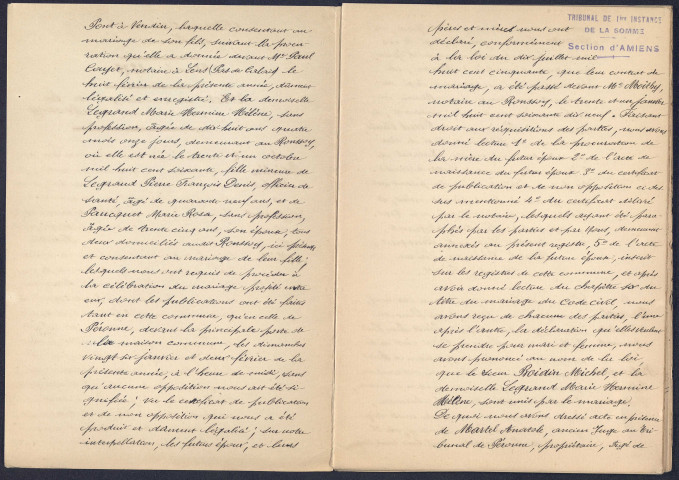 Pont à Vendin, laquelle consentant au
mariage de son fils, suivant la procu-
ration qu'elle a donnée devant Me Paul
notaire à Lens (Pas de Calais) le
huit février de la présente année, dûment
légalisée et enregistrée. Et la demoiselle
Legrand Marie Hermine Hélène, sans
profession, âgée de dix huit ans quatre
mois onze jours, demeurant au Ronssoy,
où elle est née le trente et un octobre
mil huit cent soixante, fille mineure de
Legrand Pierre François Denis, officier de
santé, âgé de quarante neuf ans, et de
Marie Rosa, sans profession,
âgée de trente cinq ans, son épouse, tous
deux domiciliés audit Ronssoy, ici présents
et consentant au mariage de leur fille ;
lesquels nous ont requis de procéder à
la célébration du mariage projeté entre
eux, dont les publications ont été faites
tant en cette commune, qu'en celle de
Péronne, devant la principale porte de
la maison commune, les dimanches
vingt six janvier et deux février de la
présente année, à l'heure de midi, sans
qu'aucune opposition nous ait été si-
gnifiée ; vu le certificat de publication
et de non opposition qui nous a été
produit et dûment légalisé ; sur notre
interpellation, les futurs époux, et leurs
TRIBUNAL DE 1ère INSTANCE
DE LA SOMME
Section d'AMIENS
pères et mères nous ont
déclaré, conformément
à la loi du dix juillet mil
huit cent cinquante, que leur contrat de
mariage, a été passé devant Me
notaire au Ronssoy, le trente et un janvier
mil huit cent soixante dix neuf. Faisant
droit aux réquisitions des parties, nous avons
donné lecture 1° de la procuration de
la mère du futur époux 2° de l'acte de
naissance du futur époux 3° du certificat
de publication et de non opposition ci des-
sus mentionné 4° du certificat délivré
par le notaire, lesquels ayant été para-
phés par les parties et par nous, demeurent
annexés au présent registre, 5° de l'acte
de naissance de la future épouse, inscrit
sur les registres de cette commune, et après
avoir donné lecture du chapitre six du
titre du mariage du Code civil, nous
avons reçu de chacune des parties, l'une
après l'autre, la déclaration qu'elles veulent
se prendre pour mari et femme, nous
avons prononcé au nom de la loi,
que le sieur Boidin Michel, et la
demoiselle Legrand Marie Hermine
Hélène, sont unis par le mariage.
De quoi nous avons dressé acte en présence
de Martel Anatole, ancien Juge au Tri-
bunal de Péronne, propriétaire, âgé de